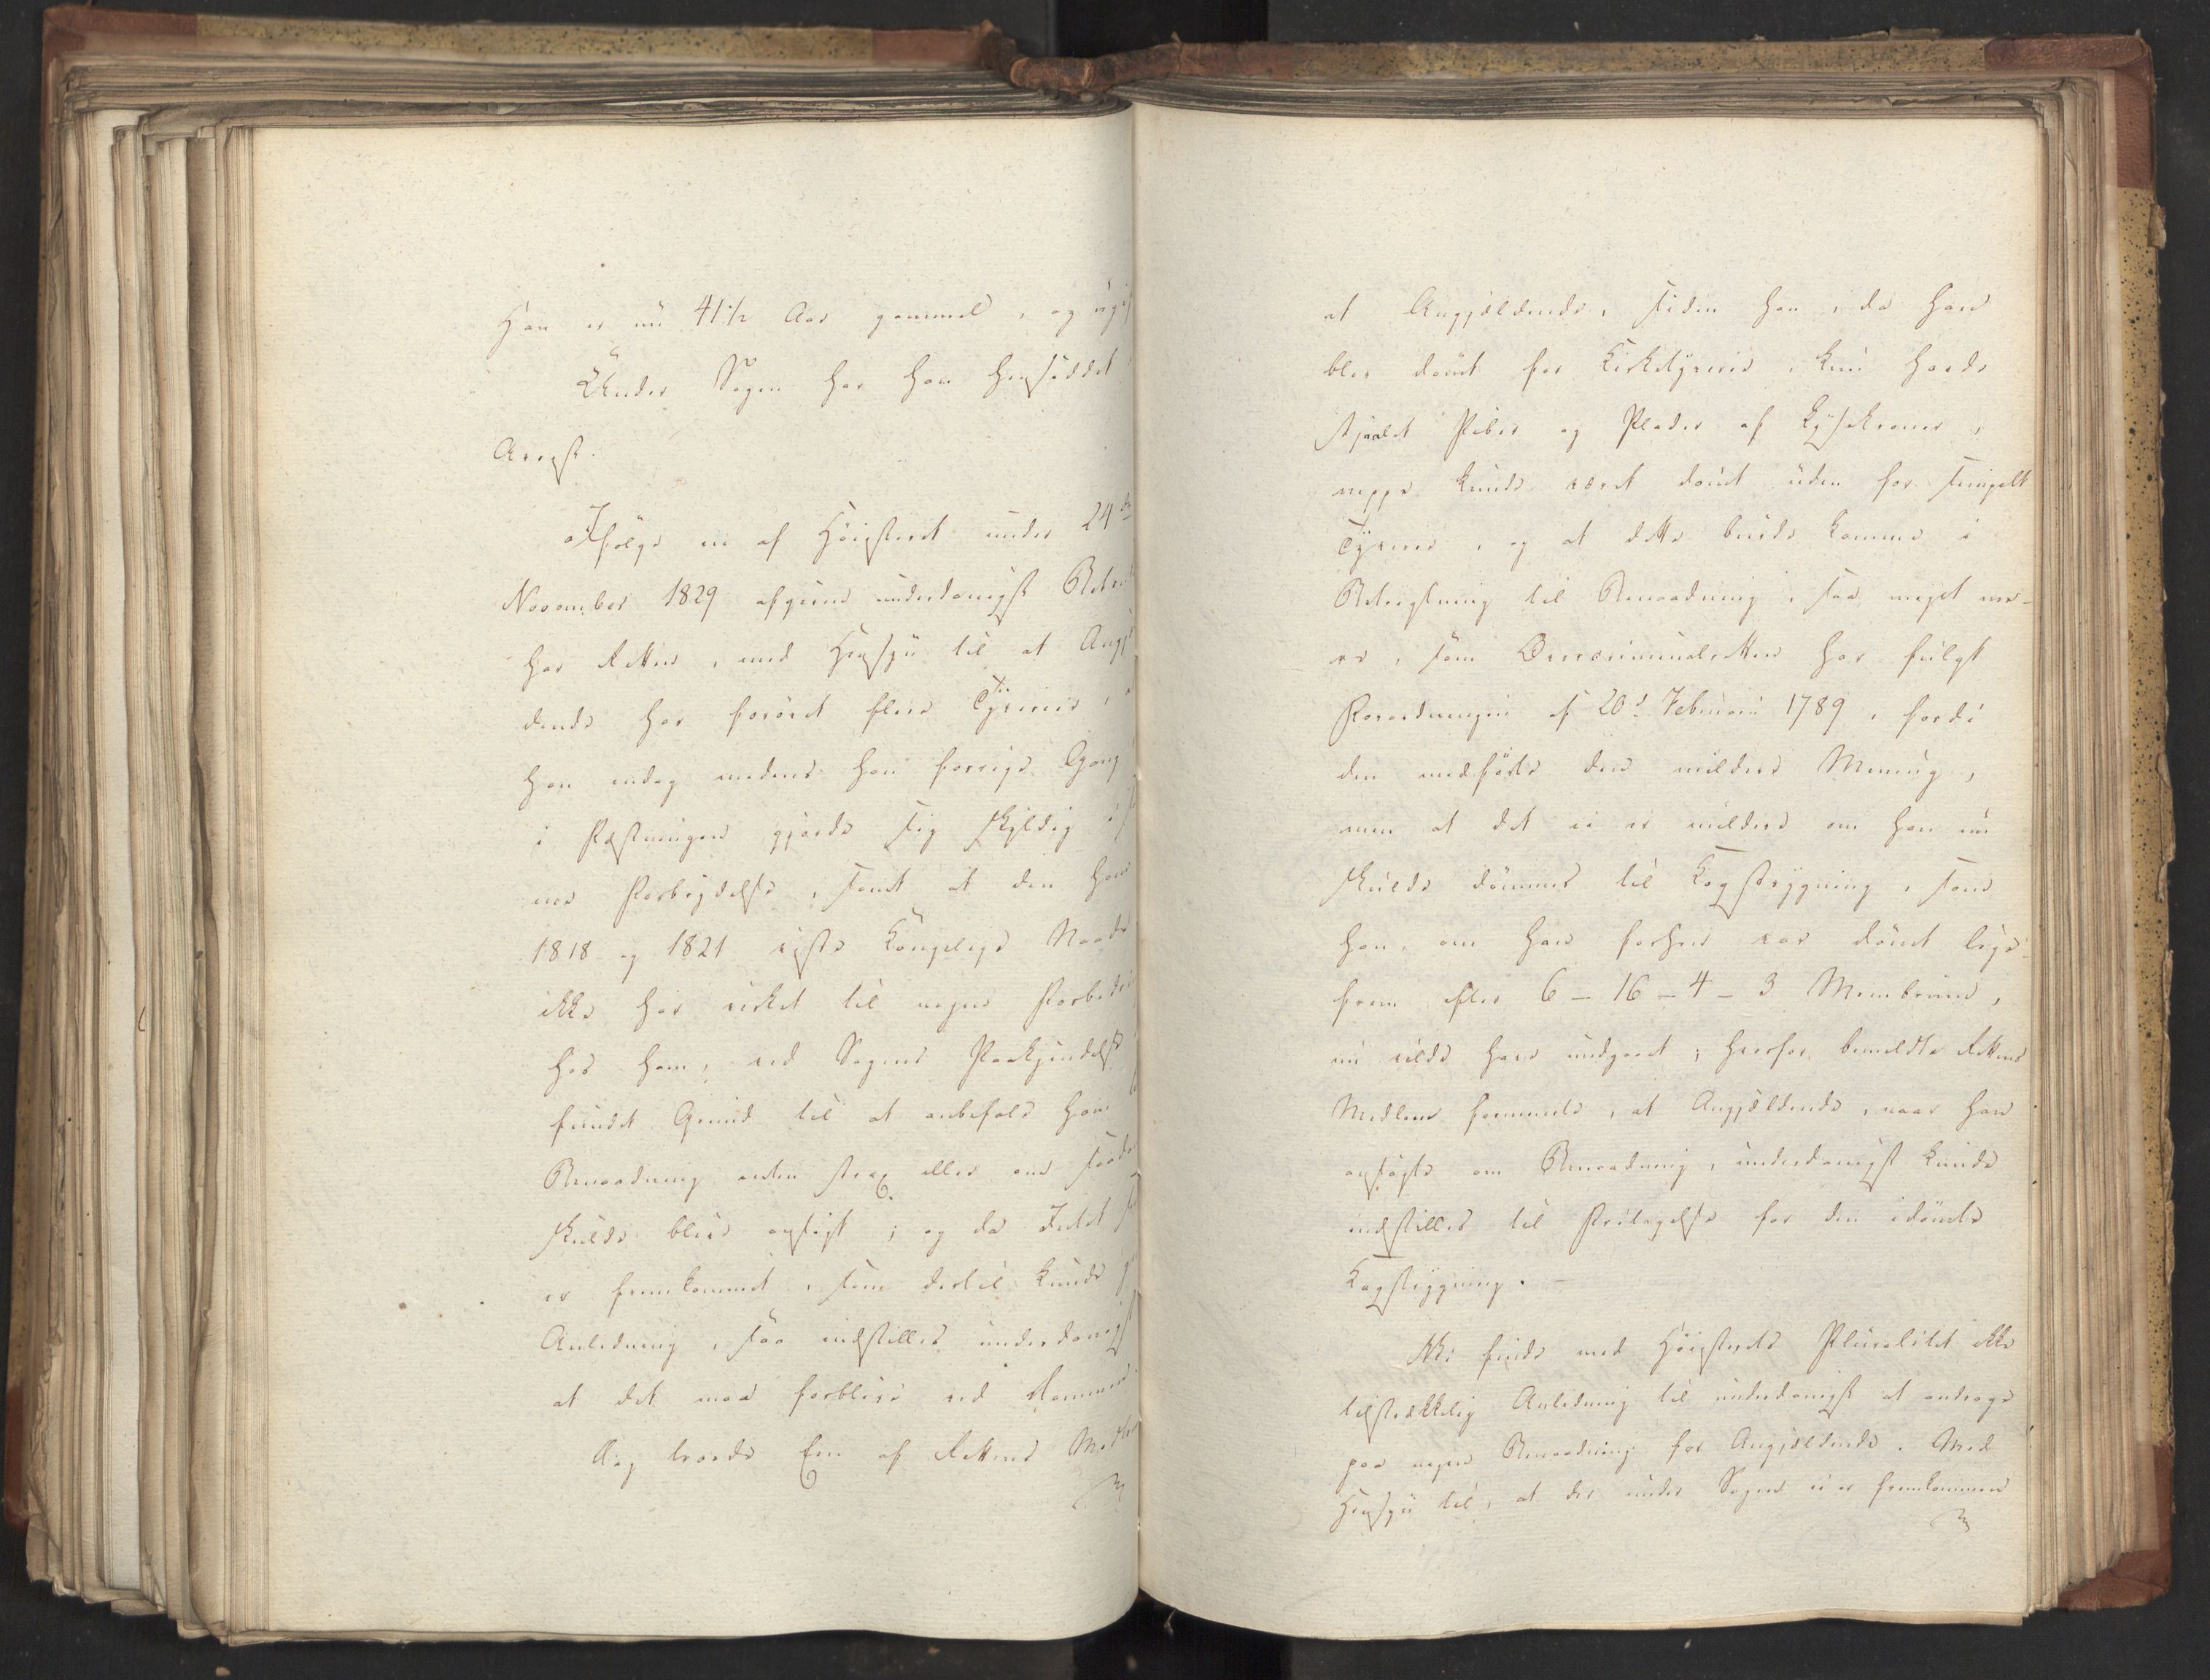 Han er nu 41 1/2 Aar gammel, og ugif
Under Sagen har han hensiddet
Arrest.
Ifølge en af Høiesteret under 24de
November 1829 afgiven underdanigst Betæn
har Retten, med Hensyn til at Angj
dende har forøvet flere Tyverier,
han endog medens han forrige Gang
i Fæstningen gjorde sig skyldig i
nes Forbrydelse, samt at den ham
1818 og 1821 viste Kongelige Naade
ikke har virket til nogen Forbedri
hos ham, ved Sagens Paakjendelse
fundet Grund til at anbefale ham
Benaadning enten strax eller om saada
skulde blive ansøgt; og da Intet
er fremkommet, som dertil kunde
Anledning, saa indstilles underdanigst
at det maa forblive ved Dommen.
Dog troede Een af Rettens Medle
at Angjældende, siden han, da han
blev dømt for Kirketyverie, kun havde
stjaalet Piber og Plader af Lysekroner,
neppe kunde været dømt uden for simpelt
Tyverie, og at dette burde komme i
Betragtning til Benaadning, saa meget me-
re, som Overcriminalretten har fulgt
Forordningen af 20d Februarii 1789, fordi
den medførte den mildere Mening,
men at det ei er mildere om han nu
skulde dømmes til Kagstrygning, som
han, om han forhen var dømt lige-
frem efter 6-16-4-3 Membrum,
nu vilde have undgaaet; hvorfor bemeldte Rettens
Medlem formeente, at Angjældende, naar han
ansøgte om Benaadning, underdanigst kunde
indstilles til Fritagelse for den idømte
Kagstrygning. -
Vi finde med Høiesterets Pluralitet ikke
tilstrækkelig Anledning til underdanigst at andrage
paa nogen Benaadning for Angjældende. Med
Hensyn til, at der under Sagen ei er fremkommen